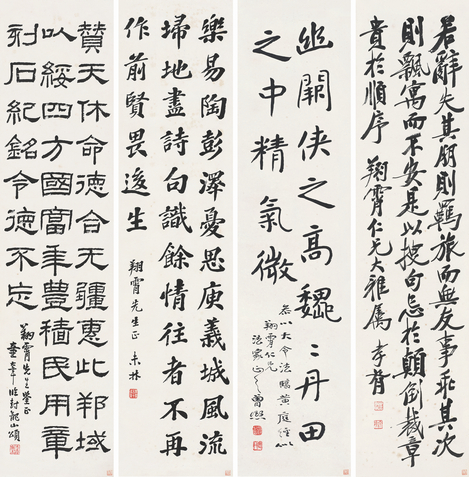 若辭失其朋則羈旅而無友事乖其次
則飄寓而不安是以搜句忌於顛倒裁章
貴於順序 翔霄仁兄大雅屬 孝胥
幽闕俠之高巍〻丹田
之中精氣微
以大令法臨黃庭經
翔霄仁兄
法家正之 曾熙
樂易陶彭澤憂思庾義城風流
掃地盡詩句識餘情往者不再
作前賢畏後生
翔霄先生正
贊天休命德合无疆惠此邦域
以綏四方國富年豐穡民用章
刻石紀銘令德不忘
翔霄先生鑒正
臨封龍山頌